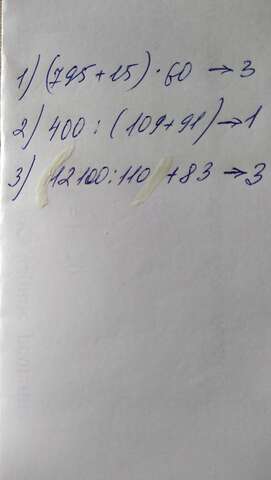 1) (795+15)·60 → 3
2) 400 : (109+91) → 1
3) 12100:110 +83 → 3